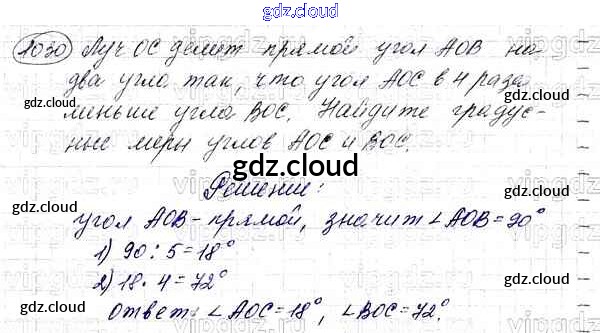 gdz.cloud
1030 Луч ОС делит прямой угол АОВ на
два угла так, что угол АОС в 4 раза
gdz.cloud gdz.cloud
меньше угла ВОС. Найдите градус-
ные меры углов АОС и ВОС.
gdz.cloud
Решение:
gdz.cloud gdz.cloud
угол АОВ - прямой, значит ∠АОВ = 90°
1) 90 : 5 = 18°
2) 18 · 4 = 72°
gdz.cloud gdz.cloud
ответ: ∠АОС = 18°, ∠ВОС = 72°.
gdz.cloud